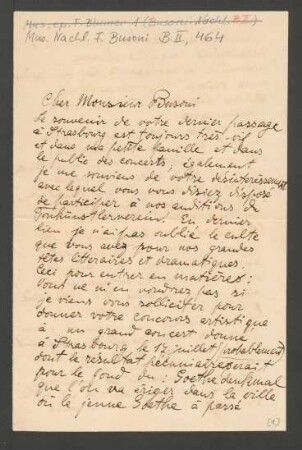 Mus. ep. F. Blumer 1 (Busoni-Nachl. B II)
Mus. Nachl. F. Busoni B II, 464
Cher Monsieur Busoni
Le souvenir de votre dernier passage
à Strasbourg est toujours très vif
et dans ma petite famille et dans
le public des concerts; également
je me souviens de votre désintéressement
avec lequel vous vous disiez disposé
de participer à nos auditions du
Tonkünstlerverein. En dernier
lieu je n'ai pas oublié le culte
que vous avez pour nos grandes
têtes litteraires et dramatiques.
Ceci pour entrer en matière:
Vous ne m'en voudrez pas si
je viens vous solliciter pour
donner votre concours artistique
à un grand concert donné
à Strasbourg le 17 juillet (probablement)
dont le résultat pécuniaire serait
pour le fond du: Goethedenkmal
que l'on va ériger dans la ville
où le jeune Goethe a passé
[1]